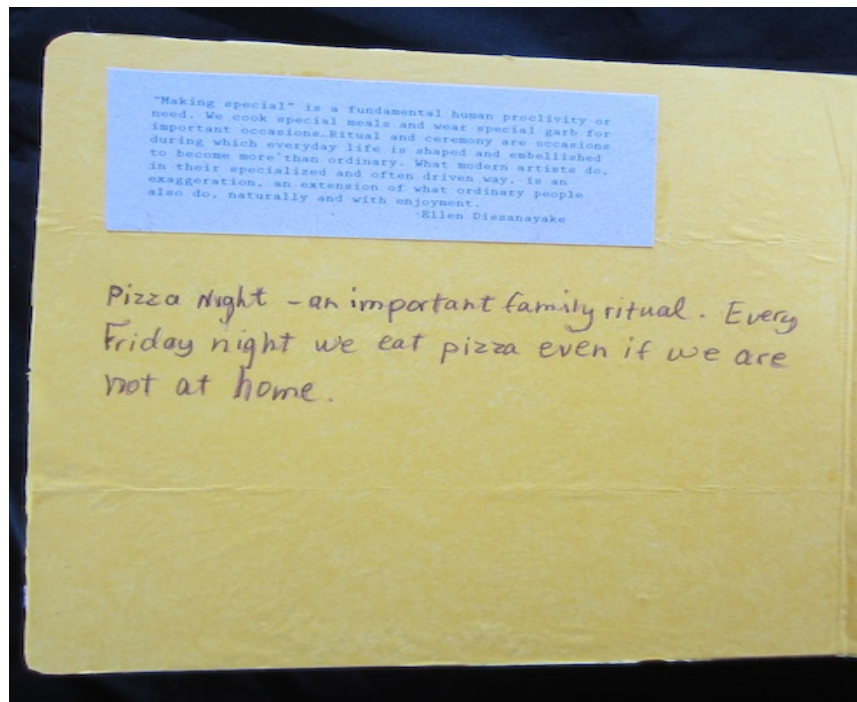 "Making special" is a fundamental human proclivity or
need. We cook special meals and wear special garb for
important occasions…Ritual and ceremony are occasions
during which everyday life is shaped and embellished
to become more than ordinary. What modern artists do,
in their specialized and often driven way, is an
exaggeration, an extension of what ordinary people
also do, naturally and with enjoyment.
-Ellen Dissanayake
Pizza Night - an important family ritual. Every
Friday night we eat pizza even if we are
not at home.